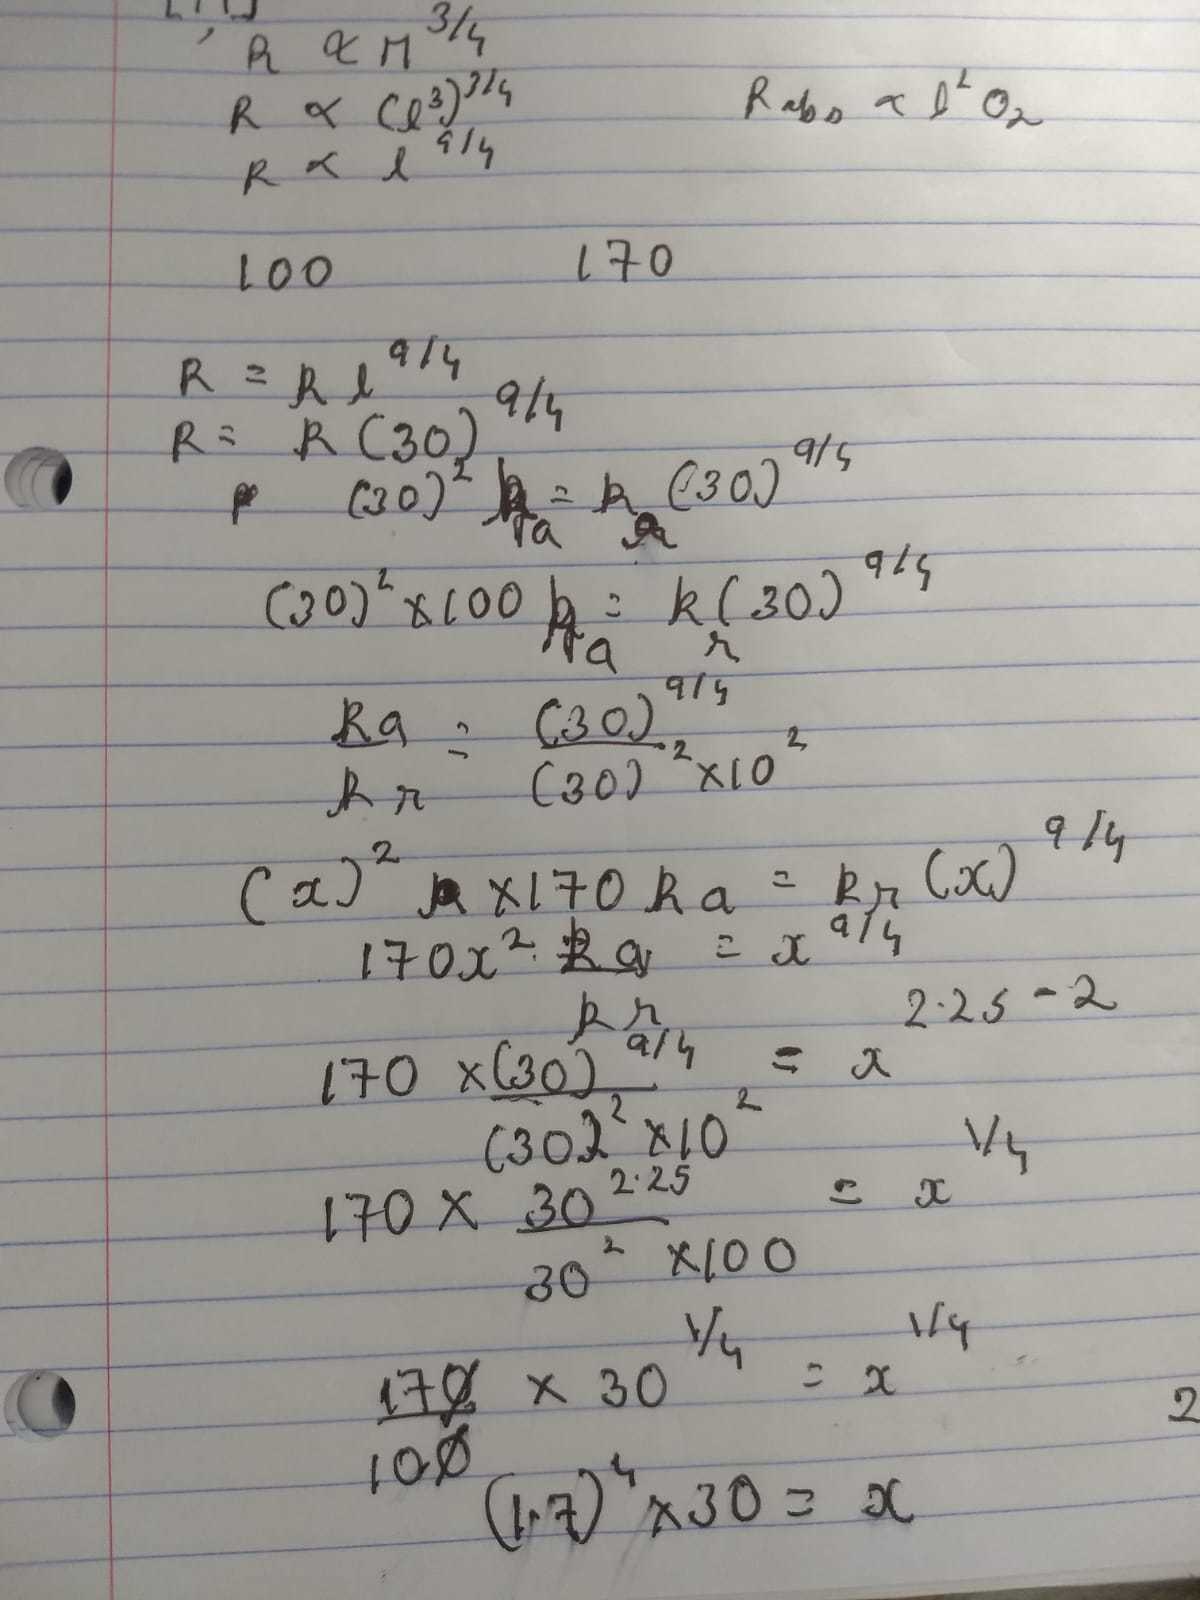 R ∝ M^3/4
R ∝ (l^3)^3/4
R abs ∝ l^2 O2
R ∝ l^9/4
100 170
R = k l^9/4
R = k (30)^9/4
(30)^2 k_a = k_r (30)^9/4
(30)^2 × 100 k_a = k_r (30)^9/4
k_a / k_r = (30)^9/4 / (30)^2 × 10^2
(x)^2 × 170 k_a = k_r (x)^9/4
170x^2 · k_a / k_r = x^9/4
170 × (30)^9/4 / (30)^2 × 10^2 = x^2.25 - 2
170 × 30^2.25 / 30^2 × 100 = x^1/4
170 / 100 × 30^1/4 = x^1/4
2
(1.7)^4 × 30 = x